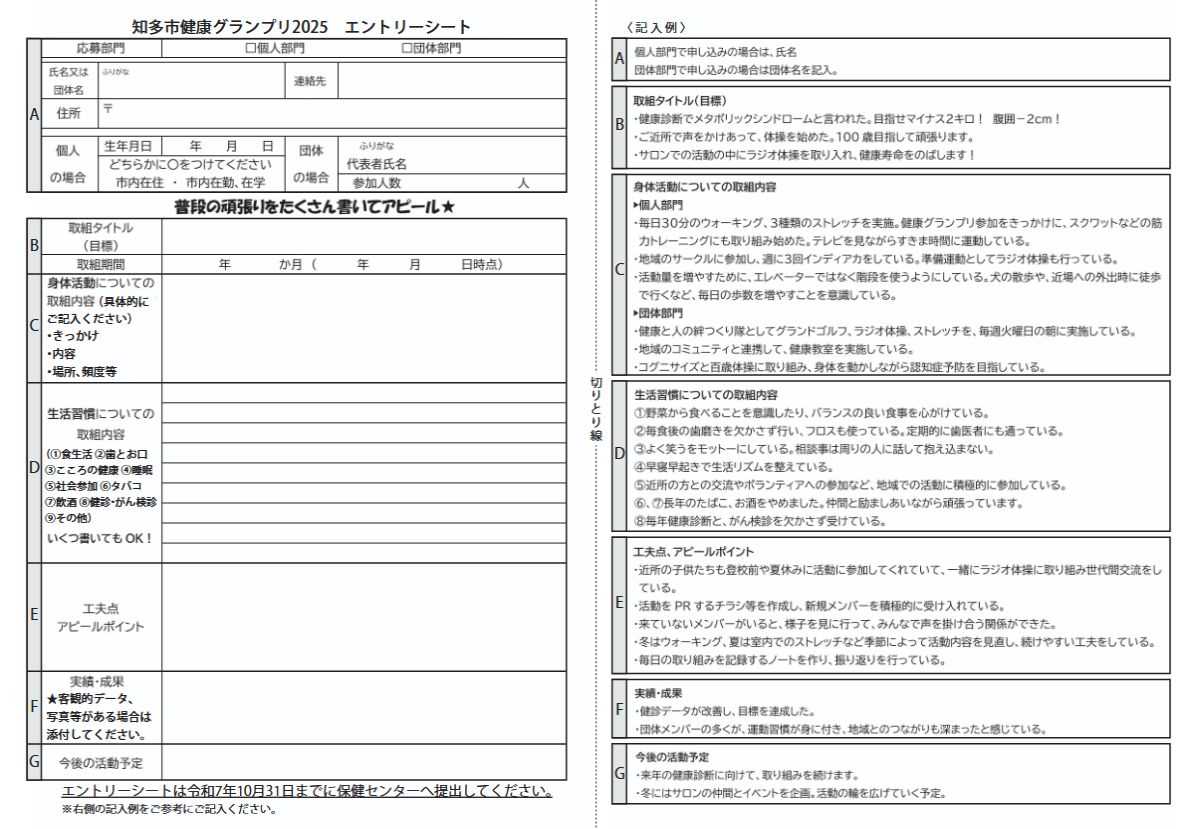 知多市健康グランプリ2025　エントリーシート
A
応募部門　□個人部門　□団体部門
氏名又は
団体名
ふりがな
連絡先
住所
〒
個人
の場合
生年月日　年　月　日
どちらかに〇をつけてください
市内在住 ・ 市内在勤、在学
団体
の場合
ふりがな
代表者氏名
参加人数　人
普段の頑張りをたくさん書いてアピール★
B
取組タイトル
（目標）
取組期間　年　か月（　年　月　日時点）
C
身体活動についての
取組内容（具体的に
ご記入ください）
・きっかけ
・内容
・場所、頻度等
D
生活習慣についての
取組内容
（①食生活 ②歯とお口
③こころの健康 ④睡眠
⑤社会参加 ⑥タバコ
⑦飲酒 ⑧健診・がん検診
⑨その他）
いくつ書いても OK！
E
工夫点
アピールポイント
F
実績・成果
★客観的データ、
写真等がある場合は
添付してください。
G
今後の活動予定
エントリーシートは令和7年10月31日までに保健センターへ提出してください。
※右側の記入例をご参考にご記入ください。
切りとり線
〈記入例〉
A
個人部門で申し込みの場合は、氏名
団体部門で申し込みの場合は団体名を記入。
B
取組タイトル（目標）
・健康診断でメタボリックシンドロームと言われた。目指せマイナス2キロ！ 腹囲－2cm！
・ご近所で声をかけあって、体操を始めた。100歳目指して頑張ります。
・サロンでの活動の中にラジオ体操を取り入れ、健康寿命をのばします！
C
身体活動についての取組内容
▶個人部門
・毎日30分のウォーキング、3種類のストレッチを実施。健康グランプリ参加をきっかけに、スクワットなどの筋
力トレーニングにも取り組み始めた。テレビを見ながらすきま時間に運動している。
・地域のサークルに参加し、週に3回インディアカをしている。準備運動としてラジオ体操も行っている。
・活動量を増やすために、エレベーターではなく階段を使うようにしている。犬の散歩や、近場への外出時に徒歩
で行くなど、毎日の歩数を増やすことを意識している。
▶団体部門
・健康と人の絆つくり隊としてグランドゴルフ、ラジオ体操、ストレッチを、毎週火曜日の朝に実施している。
・地域のコミュニティと連携して、健康教室を実施している。
・コグニサイズと百歳体操に取り組み、身体を動かしながら認知症予防を目指している。
D
生活習慣についての取組内容
①野菜から食べることを意識したり、バランスの良い食事を心がけている。
②毎食後の歯磨きを欠かさず行い、フロスも使っている。定期的に歯医者にも通っている。
③よく笑うをモットーにしている。相談事は周りの人に話して抱え込まない。
④早寝早起きで生活リズムを整えている。
⑤近所の方との交流やボランティアへの参加など、地域での活動に積極的に参加している。
⑥、⑦長年のたばこ、お酒をやめました。仲間と励ましあいながら頑張っています。
⑧毎年健康診断と、がん検診を欠かさず受けている。
E
工夫点、アピールポイント
・近所の子供たちも登校前や夏休みに活動に参加してくれていて、一緒にラジオ体操に取り組み世代間交流をし
ている。
・活動を PR するチラシ等を作成し、新規メンバーを積極的に受け入れている。
・来ていないメンバーがいると、様子を見に行って、みんなで声を掛け合う関係ができた。
・冬はウォーキング、夏は室内でのストレッチなど季節によって活動内容を見直し、続けやすい工夫をしている。
・毎日の取り組みを記録するノートを作り、振り返りを行っている。
F
実績・成果
・健診データが改善し、目標を達成した。
・団体メンバーの多くが、運動習慣が身に付き、地域とのつながりも深まったと感じている。
G
今後の活動予定
・来年の健康診断に向けて、取り組みを続けます。
・冬にはサロンの仲間とイベントを企画。活動の輪を広げていく予定。